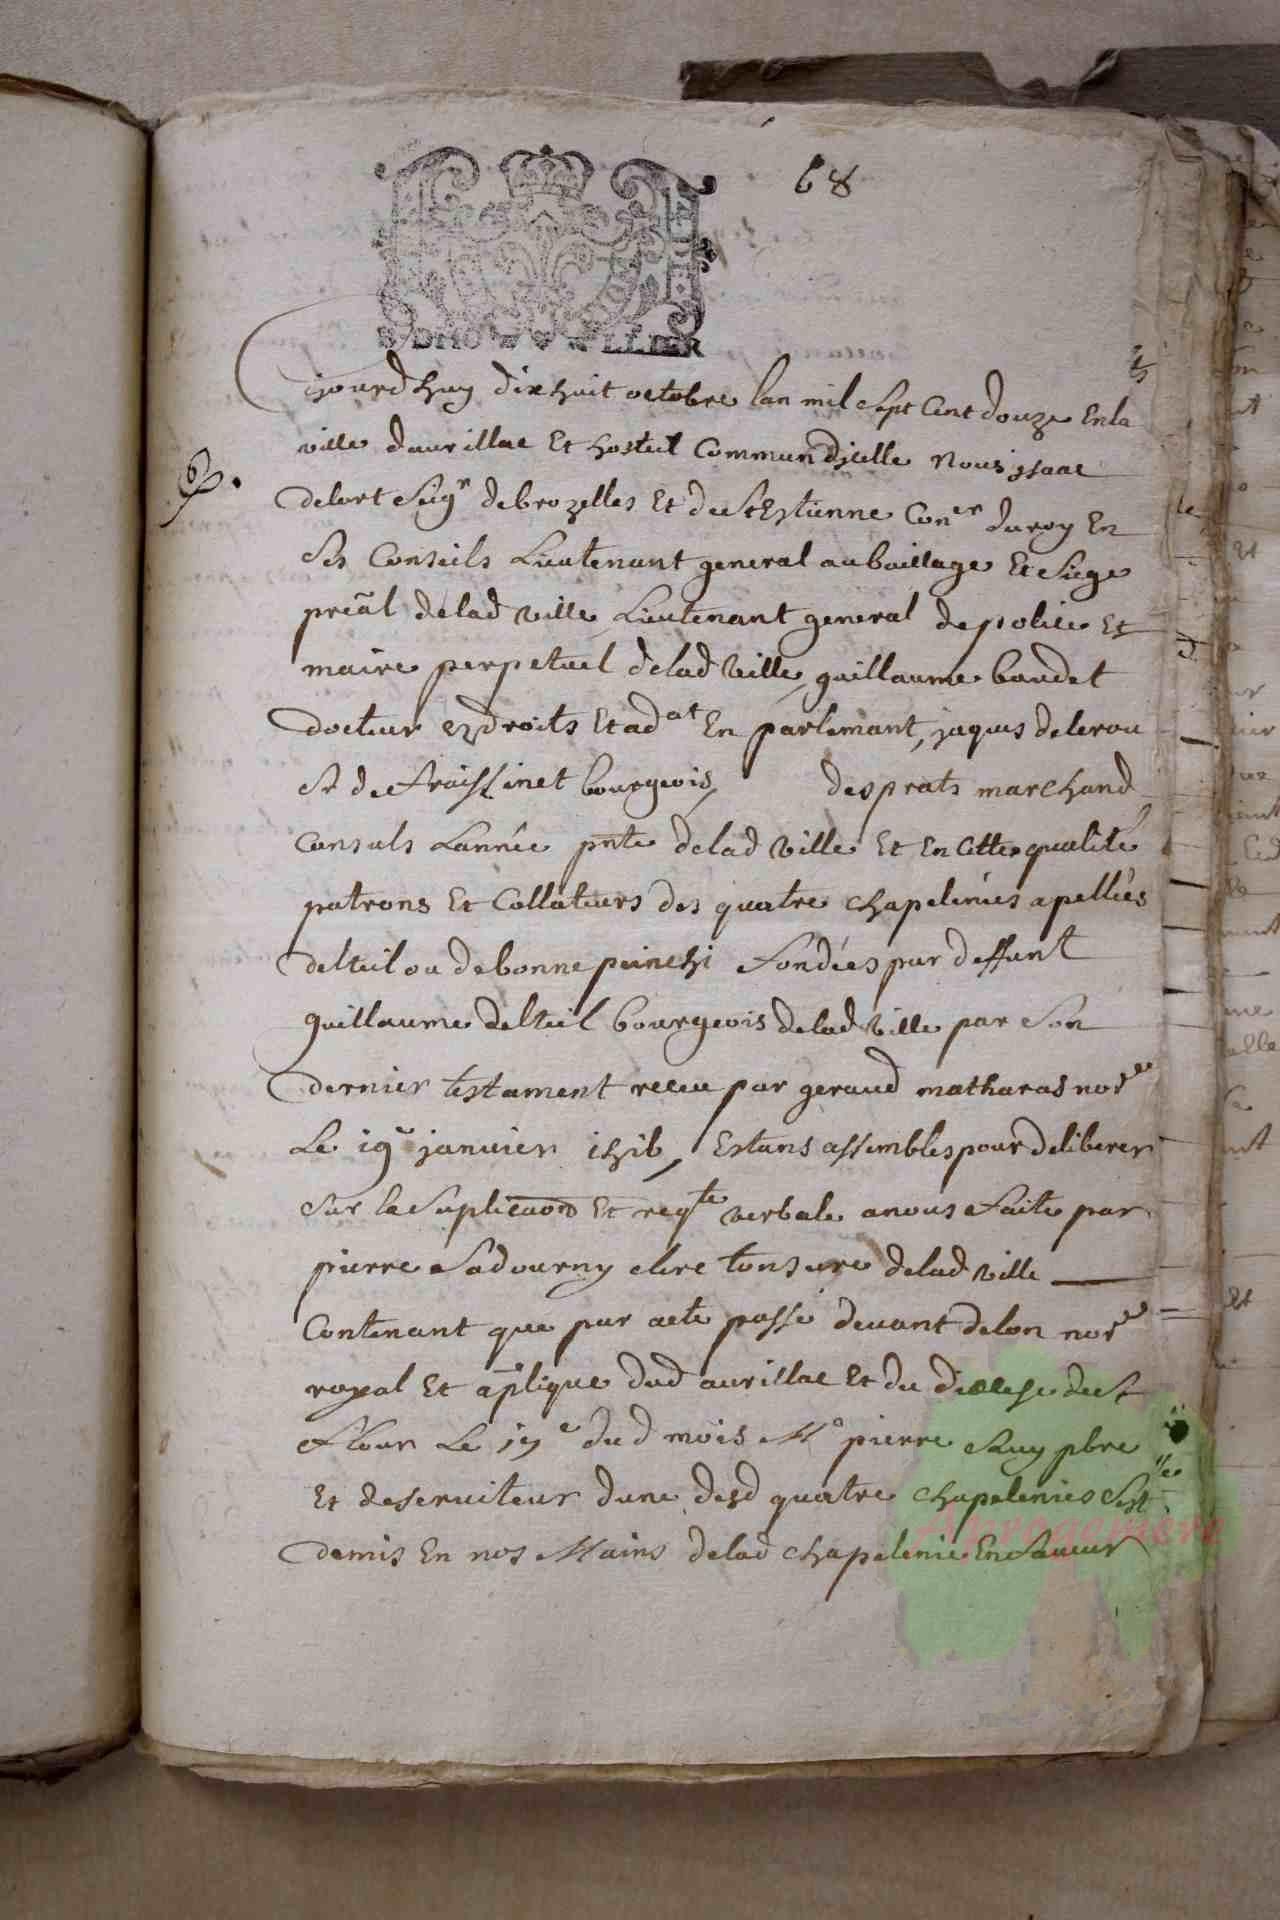 68
Cejourdhuy dixhuit octobre lan mil sept cent douze En la
ville daurillac Et hostel Commun dicelle Nous jsaac
delort Seigr debrozelles Et de St Estienne Coner du roy En
Ses Conseils Lieutenant general au bailliage Et Siege
preãl delad ville Lieutenant general depolice Et
maire perpetuel delad ville, guillaume baudet
docteur ez droits Et adat En parlemant, jaques delerou
Sr de fraissinet bourgeois, desprats marchand
Consuls Lannée pnte delad ville Et En Cette qualité
patrons Et Collateurs des quatre chapelenies apellées
delteil ou debonne Fondées par deffunt
guillaume delteil bourgeois delad ville par Son
dernier testament receu par geraud matharas nore
Le 19e janvier , Estans assembles pour deliberer
Sur la Suplicaon Et reqte verbale anous Faite par
pierre Sadourny clerc tonsure delad ville
Contenant que par acte passé devant delon nore
royal Et aplique dud aurillac Et du diocese de St
Flour Le 17e dud mois Me pierre pbre
Et deserviteur dune desd quatre chapelenies Sest
demis En nos Mains delad chapelenie En Faveur
Auprogemere